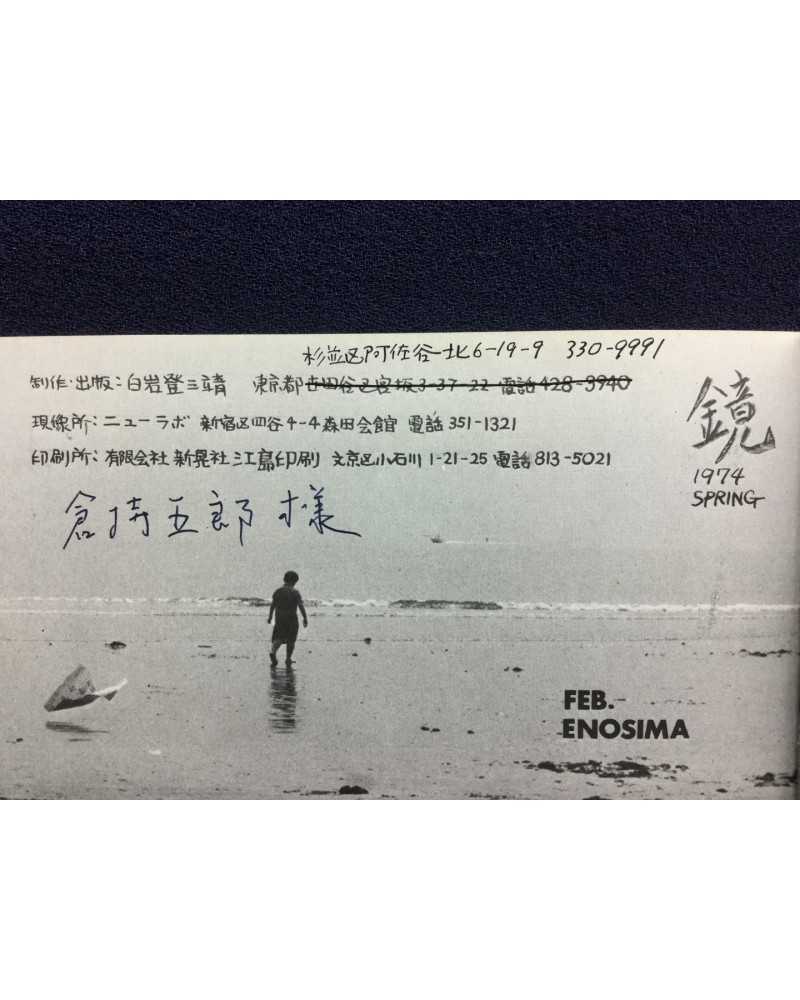 杉並区阿佐谷北6-19-9 330-9991
制作・出版:白岩登三靖 東京都世田谷区宮坂3-37-22 電話428-3940
現像所:ニューラボ 新宿区四谷4-4森田会館 電話351-1321
印刷所:有限会社 新晃社 三島印刷 文京区小石川1-21-25 電話813-5021
鏡
1974
SPRING
倉持五郎様
FEB.
ENOSIMA